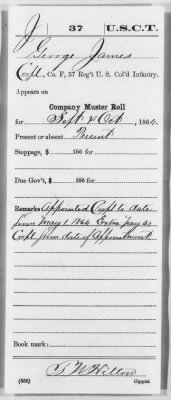 J 37 U.S.C.T.
George James
Corpl., Co. F, 37 Reg't U. S. Col'd Infantry.
Appears on
Company Muster Roll
for Sept & Oct, 1864.
Present or absent Present
Stoppage, $ 100 for
Due Gov't, $ 100 for
Remarks Appointed Corpl to date
from May 1, 1864 Extra pay as
Corpl from date of Appointment
Book mark:
(358) Copyist.